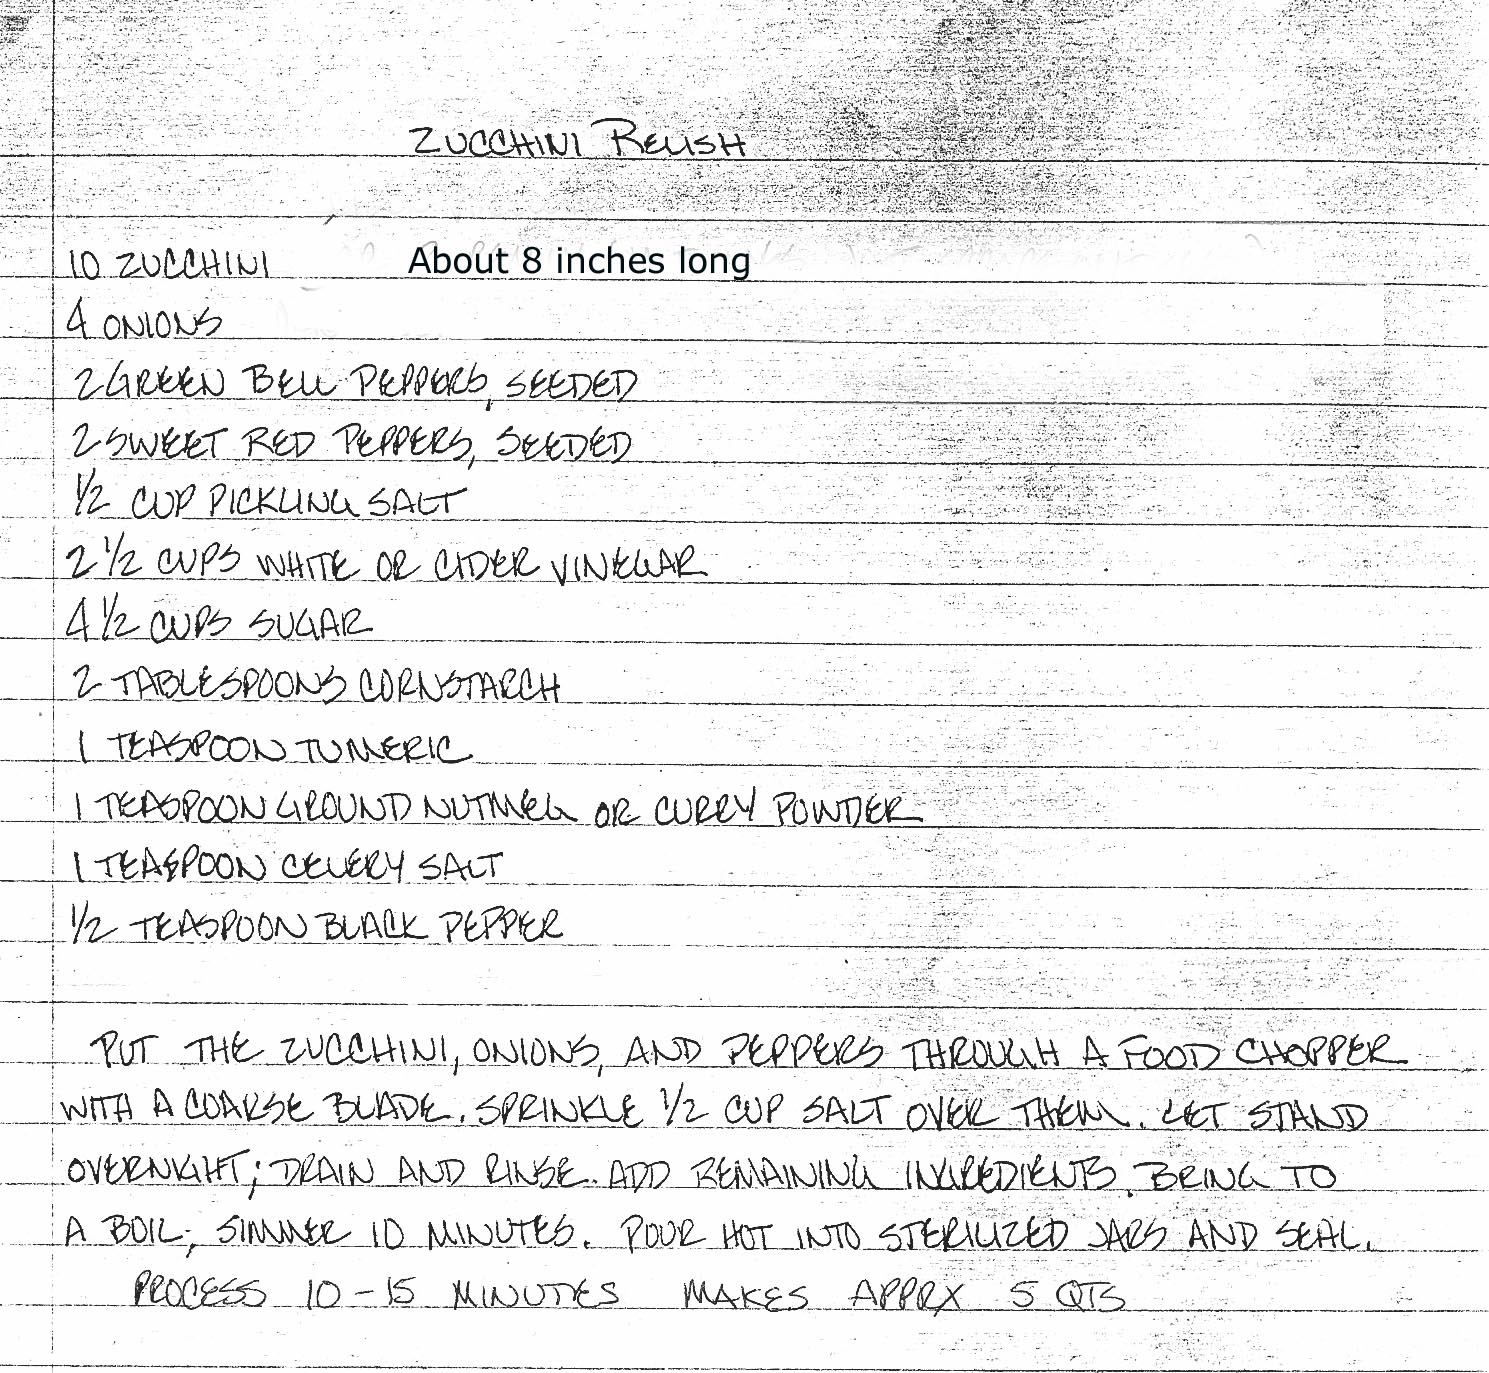 ZUCCHINI RELISH
10 ZUCCHINI About 8 inches long
4 ONIONS
2 GREEN BELL PEPPERS, SEEDED
2 SWEET RED PEPPERS, SEEDED
1/2 CUP PICKLING SALT
2 1/2 CUPS WHITE OR CIDER VINEGAR
4 1/2 CUPS SUGAR
2 TABLESPOONS CORNSTARCH
1 TEASPOON TUMERIC
1 TEASPOON GROUND NUTMEG OR CURRY POWDER
1 TEASPOON CELERY SALT
1/2 TEASPOON BLACK PEPPER
PUT THE ZUCCHINI, ONIONS, AND PEPPERS THROUGH A FOOD CHOPPER
WITH A COARSE BLADE. SPRINKLE 1/2 CUP SALT OVER THEM. LET STAND
OVERNIGHT; DRAIN AND RINSE. ADD REMAINING INGREDIENTS. BRING TO
A BOIL; SIMMER 10 MINUTES. POUR HOT INTO STERILIZED JARS AND SEAL.
PROCESS 10-15 MINUTES MAKES APPRX 5 QTS